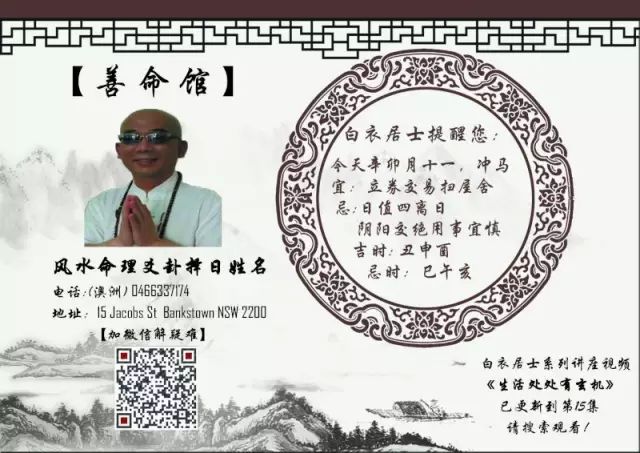 【善命馆】
风水命理爻卦择日姓名
电话:(澳洲) 0466337174
地址: 15 Jacobs St Bankstown NSW 2200
【加微信解疑难】
白衣居士提醒您:
今天辛卯月十一，冲马
宜: 立券交易扫屋舍
忌:日值四离日
阴阳交绝用事宜慎
吉时: 丑申酉
忌时: 巳午亥
白衣居士系列讲座视频
《生活处处有玄机》
已更新到第15集
请搜索观看!